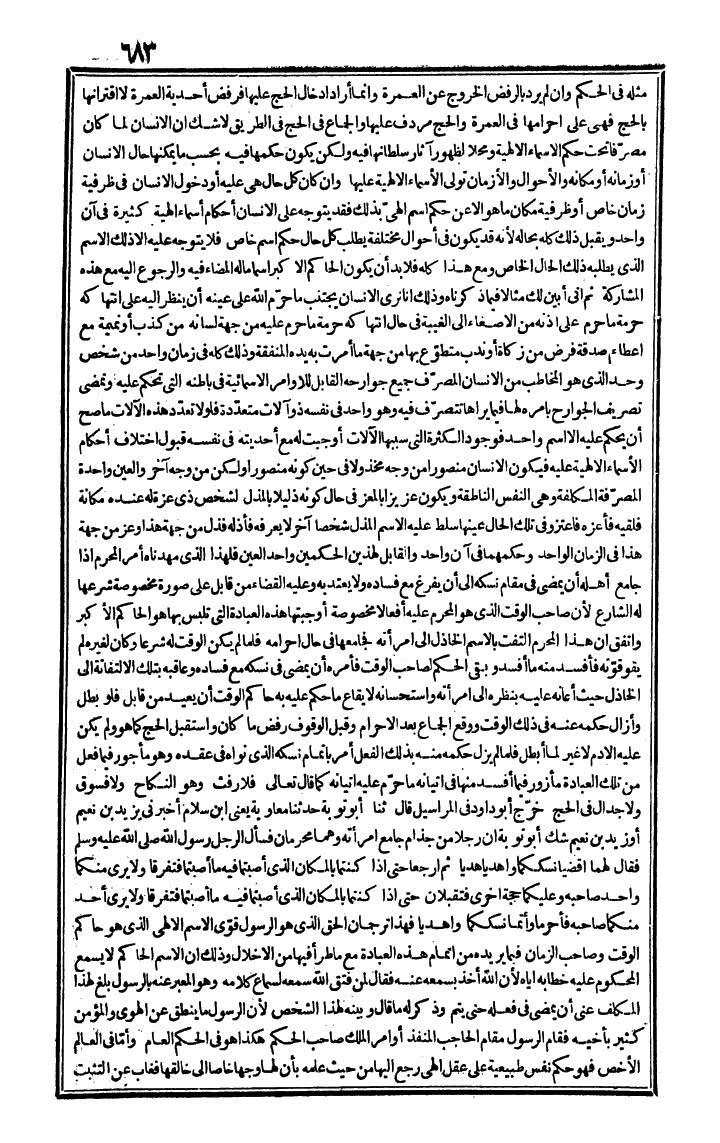 ٦٨٣
مثله في الحكم وان لم يرد بالرفض الخروج عن العمرة وانما أراد ادخال الحج عليها فرفض أحدية العمرة لا اقترانها
بالحج فهى على احرامها في العمرة والحج مردف عليها والجماع في الحج في الطريق لاشك ان الانسان لما كان
مصرّفا تحت حكم الاسماء الالهية ومحلا لظهور آثار سلطانها فيه ولكن يكون حكمها فيه بحسب ما يمكنها حال الانسان
أو زمانه أو مكانه والأحوال والأزمان تولى الأسماء الالهية عليها وان كان كل حال هى عليه أو دخول الانسان في ظرفية
زمان خاص أو ظرفية مكان ما هو الا عن حكم اسم الهىّ بذلك فقد يتوجه على الانسان أحكام أسماء الهية كثيرة في آن
واحد و يقبل ذلك كله بحاله لأنه قد يكون في أحوال مختلفة يطلب كل حال حكم اسم خاص فلا يتوجه عليه الا ذلك الاسم
الذى يطلبه ذلك الحال الخاص ومع هذا كله فلابد أن يكون الحاكم الاكبر اسما ماله المضاء فيه والرجوع اليه مع هذه
المشاركة ثم انى أبين لك مثالا فيما ذكرناه وذلك انا نرى الانسان يجتنب ما حرّم الله على عينه أن ينظر اليه على انتهاكه
حرمة ما حرم على اذنه من الاصغاء الى الغيبة في حال انتهاكه حرمة ما حرم عليه من جهة لسانه من كذب أو نميمة مع
اعطاء صدقة فرض من زكاة أو نذب متطوّع بها من جهة ما أمرت به يده المنفقة وذلك كله في زمان واحد من شخص
وحد الذى هو المخاطب من الانسان المصرّف جميع جوارحه القابل للاوامر الاسمائية في باطنه التى تحكم عليه وتمضى
تصريف الجوارح بامره لها فيما يراها تتصرّف فيه وهو واحد في نفسه ذو آلات متعدّدة فلولا تعدّد هذه الآلات ما صح
أن يحكم عليه الا اسم واحد فوجود الكثرة التى سببها الآلات أوجبت له مع أحديته في نفسه قبول اختلاف أحكام
الأسماء الالهية عليه فيكون الانسان منصورا من وجه مخذولا في حين كونه منصورا ولكن من وجه آخر والعين واحدة
المصرّفة المكلفة وهى النفس الناطقة و يكون عزيزا بالمعز في حال كونه ذليلا بالمذل لشخص ذى عزة له عنده مكانة
فلقيه فأعزه فاعتز وفى تلك الحال عينها سلط عليه الاسم المذل شخصا آخر لا يعرفه فأذله فذل من جهة هذا وعز من جهة
هذا في الزمان الواحد وحكمهما في آن واحد والقابل لهذين الحكمين واحد العين فلهذا الذى مهدناه أمر المحرم اذا
جامع أهله أن يمضى في مقام نسكه الى أن يفرغ مع فساده ولا يعتد به وعليه القضاء من قابل على صورة مخصوصة شرعها
له الشارع لأن صاحب الوقت الذى هو المحرم عليه أفعالا مخصوصة أوجبتها هذه العبادة التى تلبس بها هو الحاكم الأكبر
واتفق ان هذا المحرم التفت بالاسم الخاذل الى امرأته فجامعها في حال احرامه فلما لم يكن الوقت له شرعا وكان لغيره لم
يقو قوّته فأفسد منه ما أفسد و بقى الحكم لصاحب الوقت فأمره أن يمضى في نسكه مع فساده وعاقبه بتلك الالتفاتة الى
الخاذل حيث أعانه عليه بنظره الى امرأته واستحسانه لايقاع ما حكم عليه به حاكم الوقت أن يعيد من قابل فلو بطل
وأزال حكمه عنه في ذلك الوقت ووقع الجماع بعد الاحرام وقبل الوقوف رفض ما كان واستقبل الحج كما هو ولم يكن
عليه الا دم لا غير لما أبطل فلما لم يزل حكمه منه بذلك الفعل أمر باتمام نسكه الذى نواه في عقده وهو مأجور فيما فعل
من تلك العبادة مأزور فيما أفسد منها في اتيانه ما حرّم عليه اتيانه كما قال تعالى فلا رفث وهو النكاح ولا فسوق
ولا جدال في الحج خرّج أبو داود في المراسيل قال ثنا أبو توبة حدثنا معاوية يعنى ابن سلام أخبرنى يزيد بن نعيم
أوزيد بن نعيم شك أبو توبة ان رجلا من جذام جامع امرأته وهما محرمان فسأل الرجل رسول الله صلى الله عليه وسلم
فقال لهما اقضيا نسككما واهديا هديا ثم ارجعا حتى اذا كنتما بالمكان الذى أصبتما فيه ما أصبتما فتفرقا ولا يرى منكما
واحد صاحبه وعليكما حجة اخرى فتقبلان حتى اذا كنتما بالمكان الذى أصبتما فيه ما أصبتما فتفرقا ولا يرى أحد
منكما صاحبه فأحرما وأتما نسككما واهديا فهذا ترجمان الحق الذى هو الرسول قوّى الاسم الالهى الذى هو حاكم
الوقت وصاحب الزمان فيما يريده من اتمام هذه العبادة مع ما طرأ فيها من الاخلال وذلك ان الاسم الحاكم لا يسمع
المحكوم عليه خطابه اياه لأن الله أخذ بسمعه عنه فقال لمن فتق الله سمعه لسماع كلامه وهو المعبر عنه بالرسول بلغ لهذا
المكلف عنى أن يمضى في فعله حتى يتم وذكر له ما قال و بينه لهذا الشخص لأن الرسول ما ينطق عن الهوى والمؤمن
كثير بأخيه فقام الرسول مقام الحاجب المنفذ أوامر الملك صاحب الحكم هكذا هو في الحكم العام وأمّا في العالم
الأخص فهو حكم نفس طبيعية على عقل الهى رجع اليها من حيث علمه بأن لها وجها خاصا الى خالقها فغاب عن التثبت